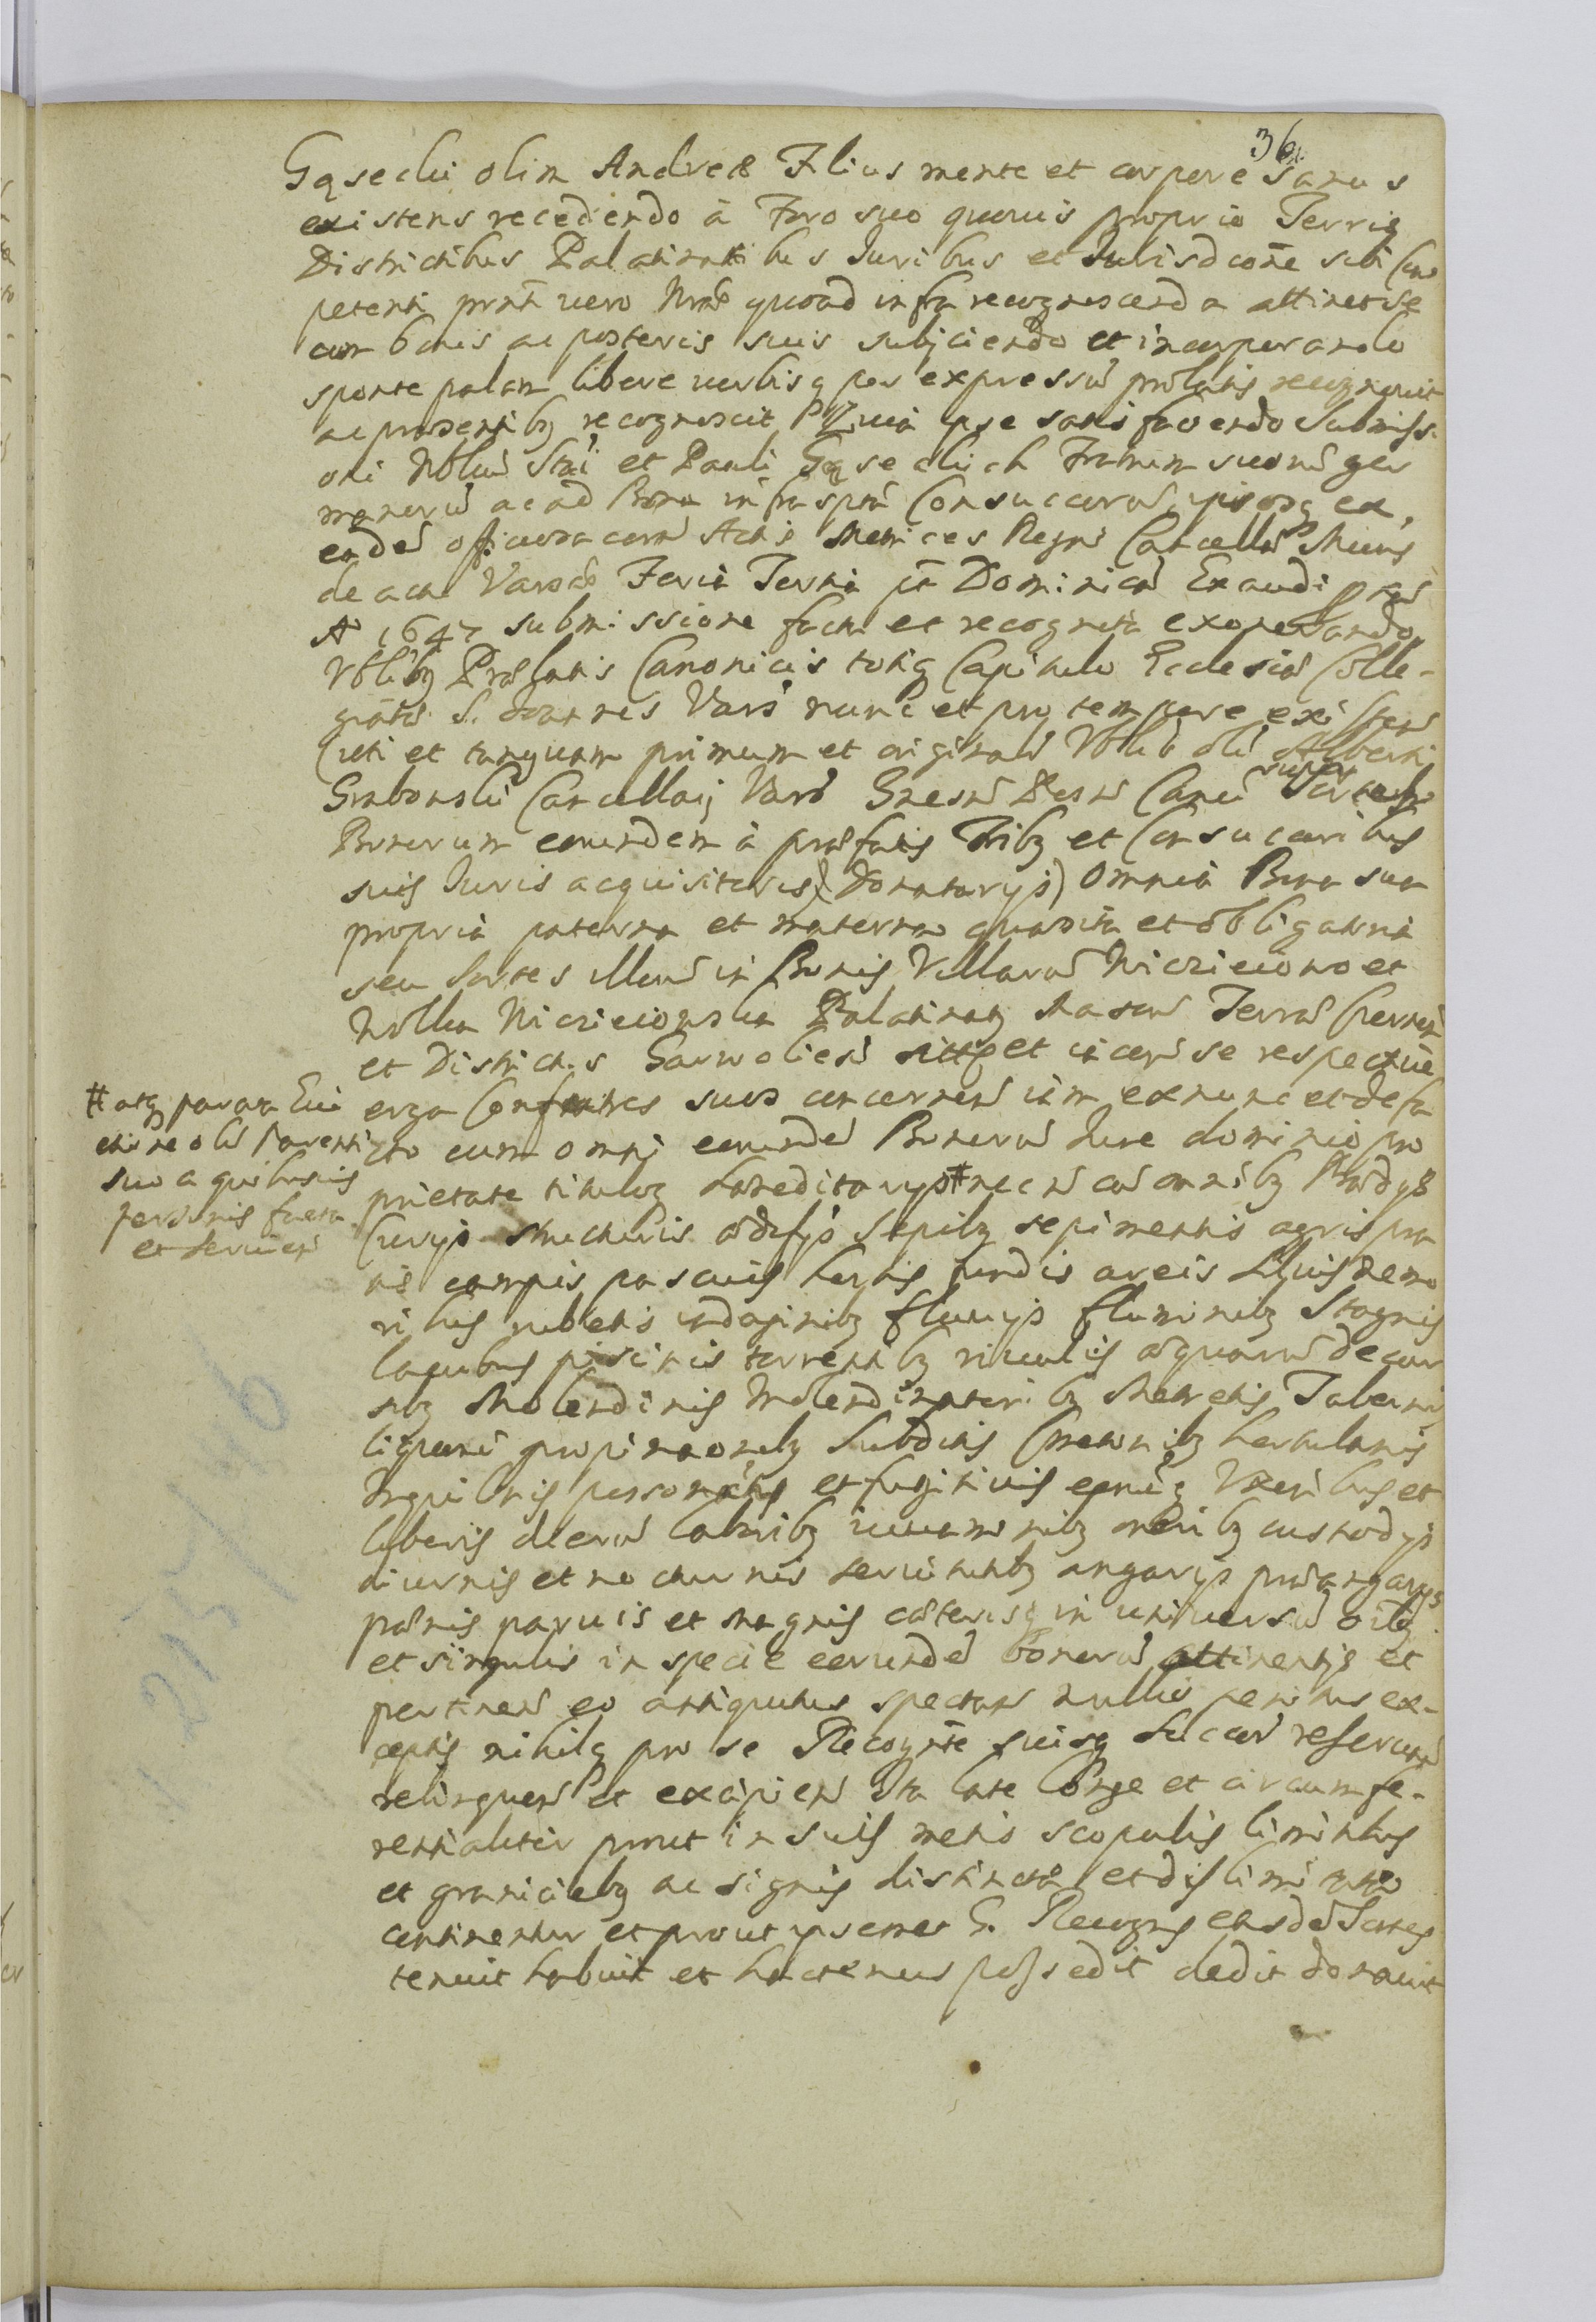 36
Gąsecki olim Andreæ Filius mente et corpore sanus
existens recedendo à Foro suo quouis proprio Terris
Districtibus Palatinatibus Iuribus et Iurisdcōne sibi Com
petenti prnti uero Nrae quoad infra recognoscenda attinet se
cum bonis ac posteris suis subijciendo et incorporando
sponte palam libere uerbisq per expressum prolatis recognouit
ac praesentibq recognoscit Quia ipse satisfaciendo Submiss
oni Nblium Stai et Pauli Gąseckich Fratrum suorū ger
manorū ac ad Bona infrascpta Consuccorum ipsorq ex
eadē officiosa coram Actis Metrices Regni Cancellar Maioris
de acta Varsae Feria Tertia pt Dominicā Exaudi prox
A 1647 submissione facta et recognita exonerando
Vblibq Praelatis Canonicis totiq Capitulo Ecclesiae Colle-
giatae S. Joannis Vars nunc et pro tempore existen
(uti et tanquam primum et originalem Vblis oli Alberti
Grabowski Cancellarij Vars Gnesn Posn Canci super Sortes
Bonorum eorundem à praefatis Frībq et Consuccoribus
suis Iuris acquisitores) Donatarijs) Omnia Bona sua
propria paterna et materna quaesita et obligatoria
seu Sortes illius in Bonis Villarū Niecieciowo et
Wolka Niecieciowska Palatinatq Masou Terrae Cernen
et Districtus Garwolien sittq et incerū se respectiue
erga Confratres suos concernen iam exnunc et de fa
cto cum omni eorundē Bonorū Iure dominio pro
prietate tituloq haereditarijs # necn cū omnibq Praedijs
Curijs structuris aedificijs sepibq sepimentis agris pra
tis campis pascuis hortis fundis areis syluis nemo
ribus rubetis indaginibq fluuijs fluminibq Stagnis
lacubus piscinis torrentibq riuulis aquarū decur
sibq Molendinis Molendinatoribq Metretis Tabernis
liquorū propinaonibq Subditis Cmetonibq hortulanis
Inquilinis personatis et fugitiuis eorūq Vxoribus et
liberis illorū laboribq iuuaminibq onēribq custodijs
diurnis et nocturnis seruitutibq angarijs praeangarijs
poenis paruis et magnis caeterisq in uniuersū oībq
et singulis in specie eorundē bonorū attinentijs et
pertinen eo antiquitus spectan nullis penitus ex-
ceptis nihilq pro se Recognte suisq Succor reseruan
relinquen et excipien Ita late longe et circumfe-
rentialiter prout in suis metis scopulis limitibus
et graniciebq ac signis distincta et dislimitata
continentur et prout ipsemet G. Recogns easdē Sortes
tenuit habuit et hactenus possedit dedit donauit
# atq paratū Eui
ctione oli Parenti
suo a quibusuis
personis facta
et seruien